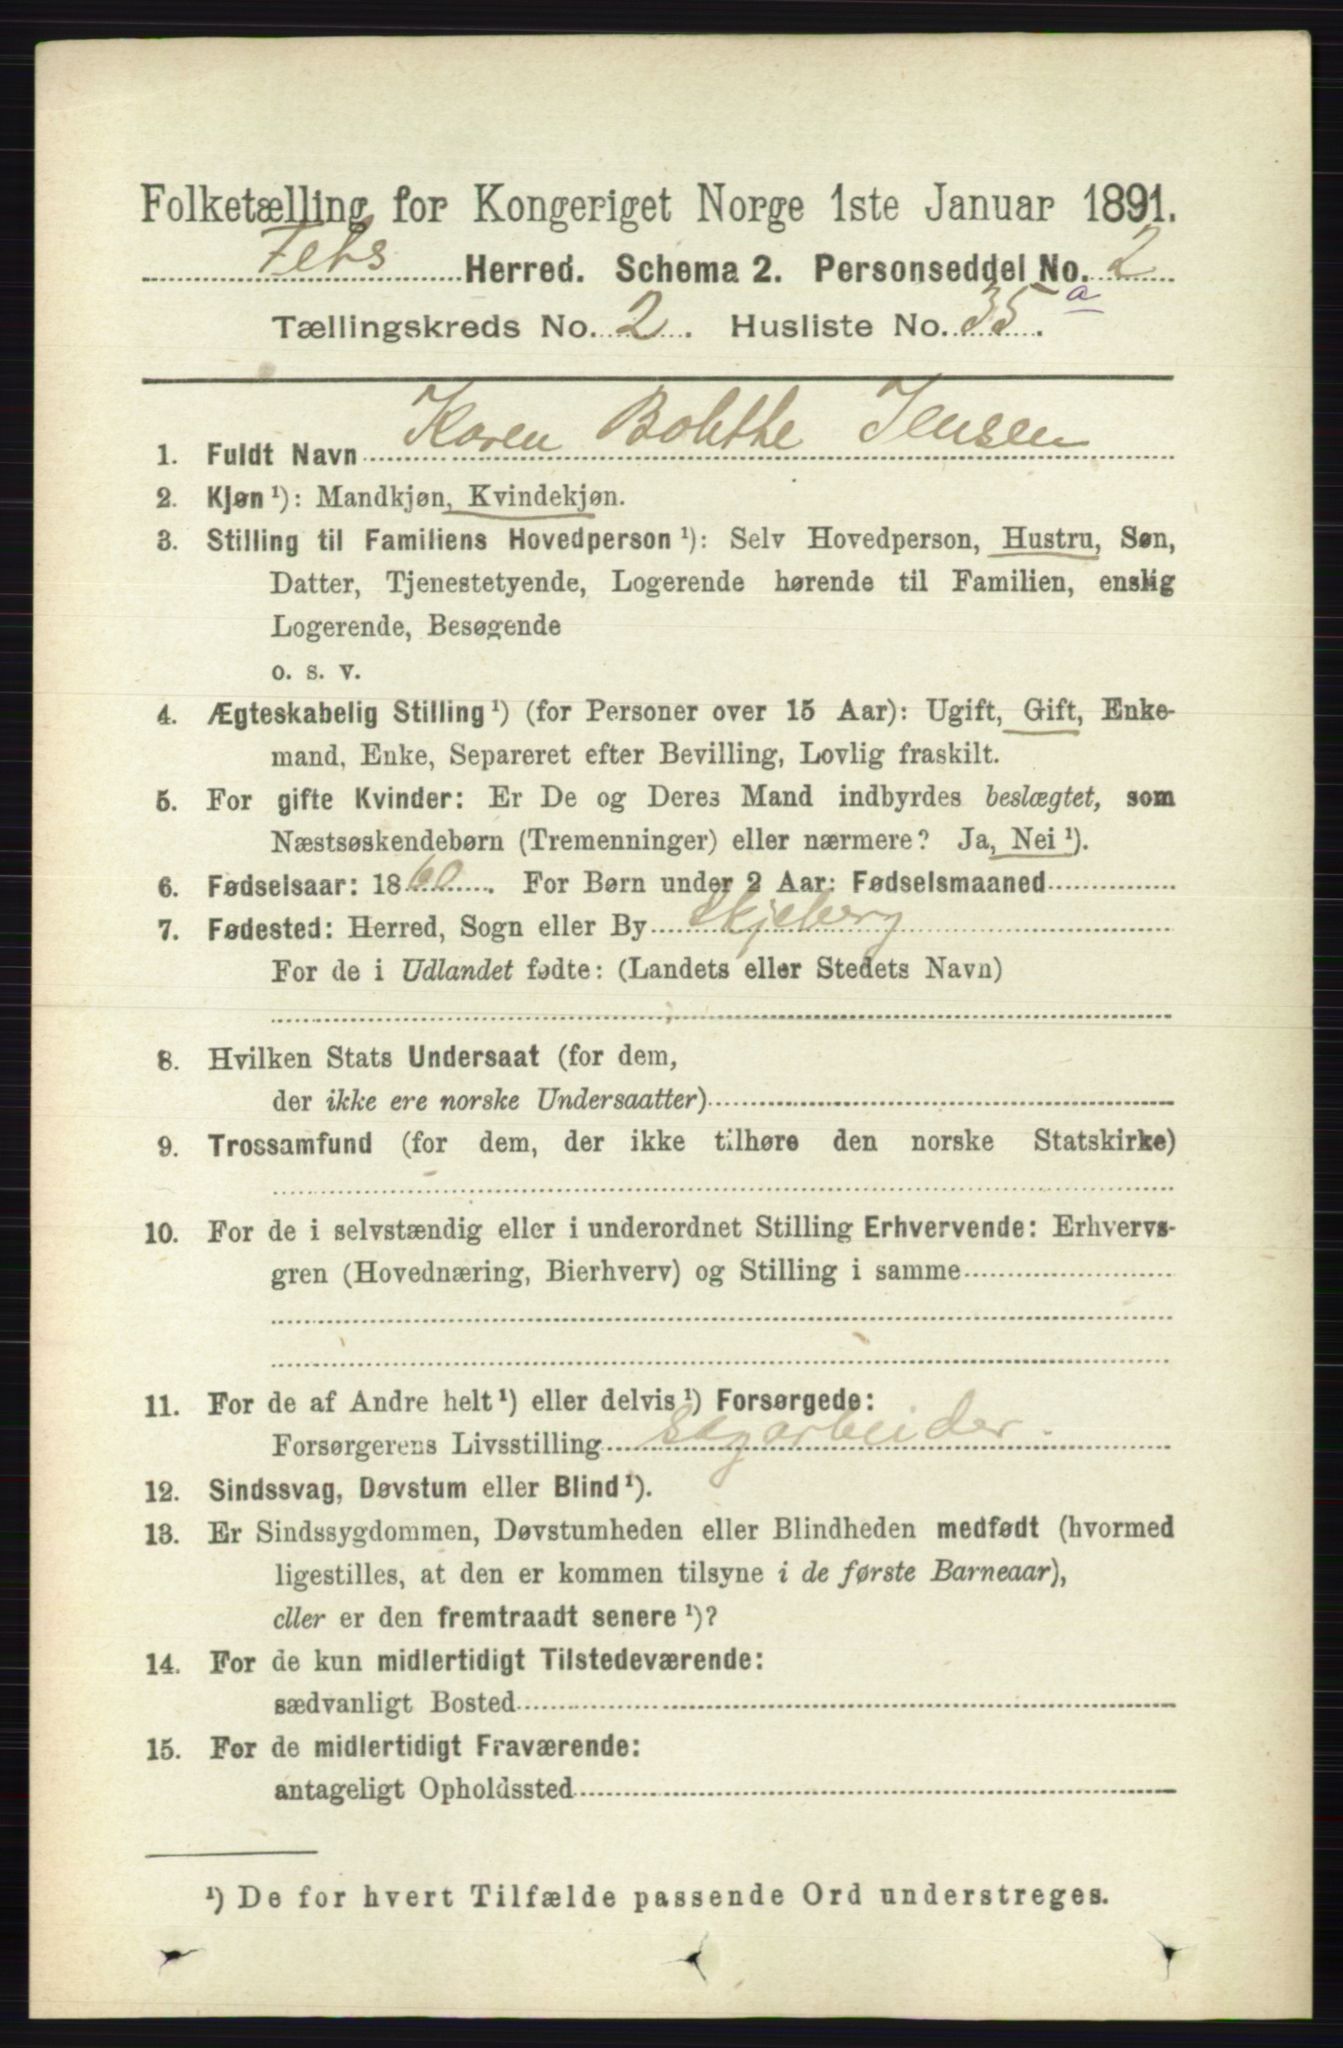 Folketælling for Kongeriget Norge 1ste Januar 1891.
Fets Herred. Schema 2. Personseddel No. 2
Tællingskreds No. 2. Husliste No. 35.a
1. Fuldt Navn Karen Bolethe Jensen
2. Kjøn ¹): Mandkjøn, Kvindekjøn.
3. Stilling til Familiens Hovedperson ¹): Selv Hovedperson, Hustru, Søn,
Datter, Tjenestetyende, Logerende hørende til Familien, enslig
Logerende, Besøgende
o. s. v.
4. Ægteskabelig Stilling ¹) (for Personer over 15 Aar): Ugift, Gift, Enke-
mand, Enke, Separeret efter Bevilling, Lovlig fraskilt.
5. For gifte Kvinder: Er De og Deres Mand indbyrdes beslægtet, som
Næstsøskendebørn (Tremenninger) eller nærmere? Ja, Nei ¹).
6. Fødselsaar: 1860. For Børn under 2 Aar: Fødselsmaaned
7. Fødested: Herred, Sogn eller By Skjeberg
For de i Udlandet fødte: (Landets eller Stedets Navn)
8. Hvilken Stats Undersaat (for dem,
der ikke ere norske Undersaatter)
9. Trossamfund (for dem, der ikke tilhøre den norske Statskirke)
10. For de i selvstændig eller i underordnet Stilling Erhvervende: Erhvervs-
gren (Hovednæring, Bierhverv) og Stilling i samme
11. For de af Andre helt ¹) eller delvis ¹) Forsørgede:
Forsørgerens Livsstilling Sagarbeider.
12. Sindssvag, Døvstum eller Blind ¹).
13. Er Sindssygdommen, Døvstumheden eller Blindheden medfødt (hvormed
ligestilles, at den er kommen tilsyne i de første Barneaar),
eller er den fremtraadt senere ¹)?
14. For de kun midlertidigt Tilstedeværende:
sædvanligt Bosted
15. For de midlertidigt Fraværende:
antageligt Opholdssted
¹) De for hvert Tilfælde passende Ord understreges.